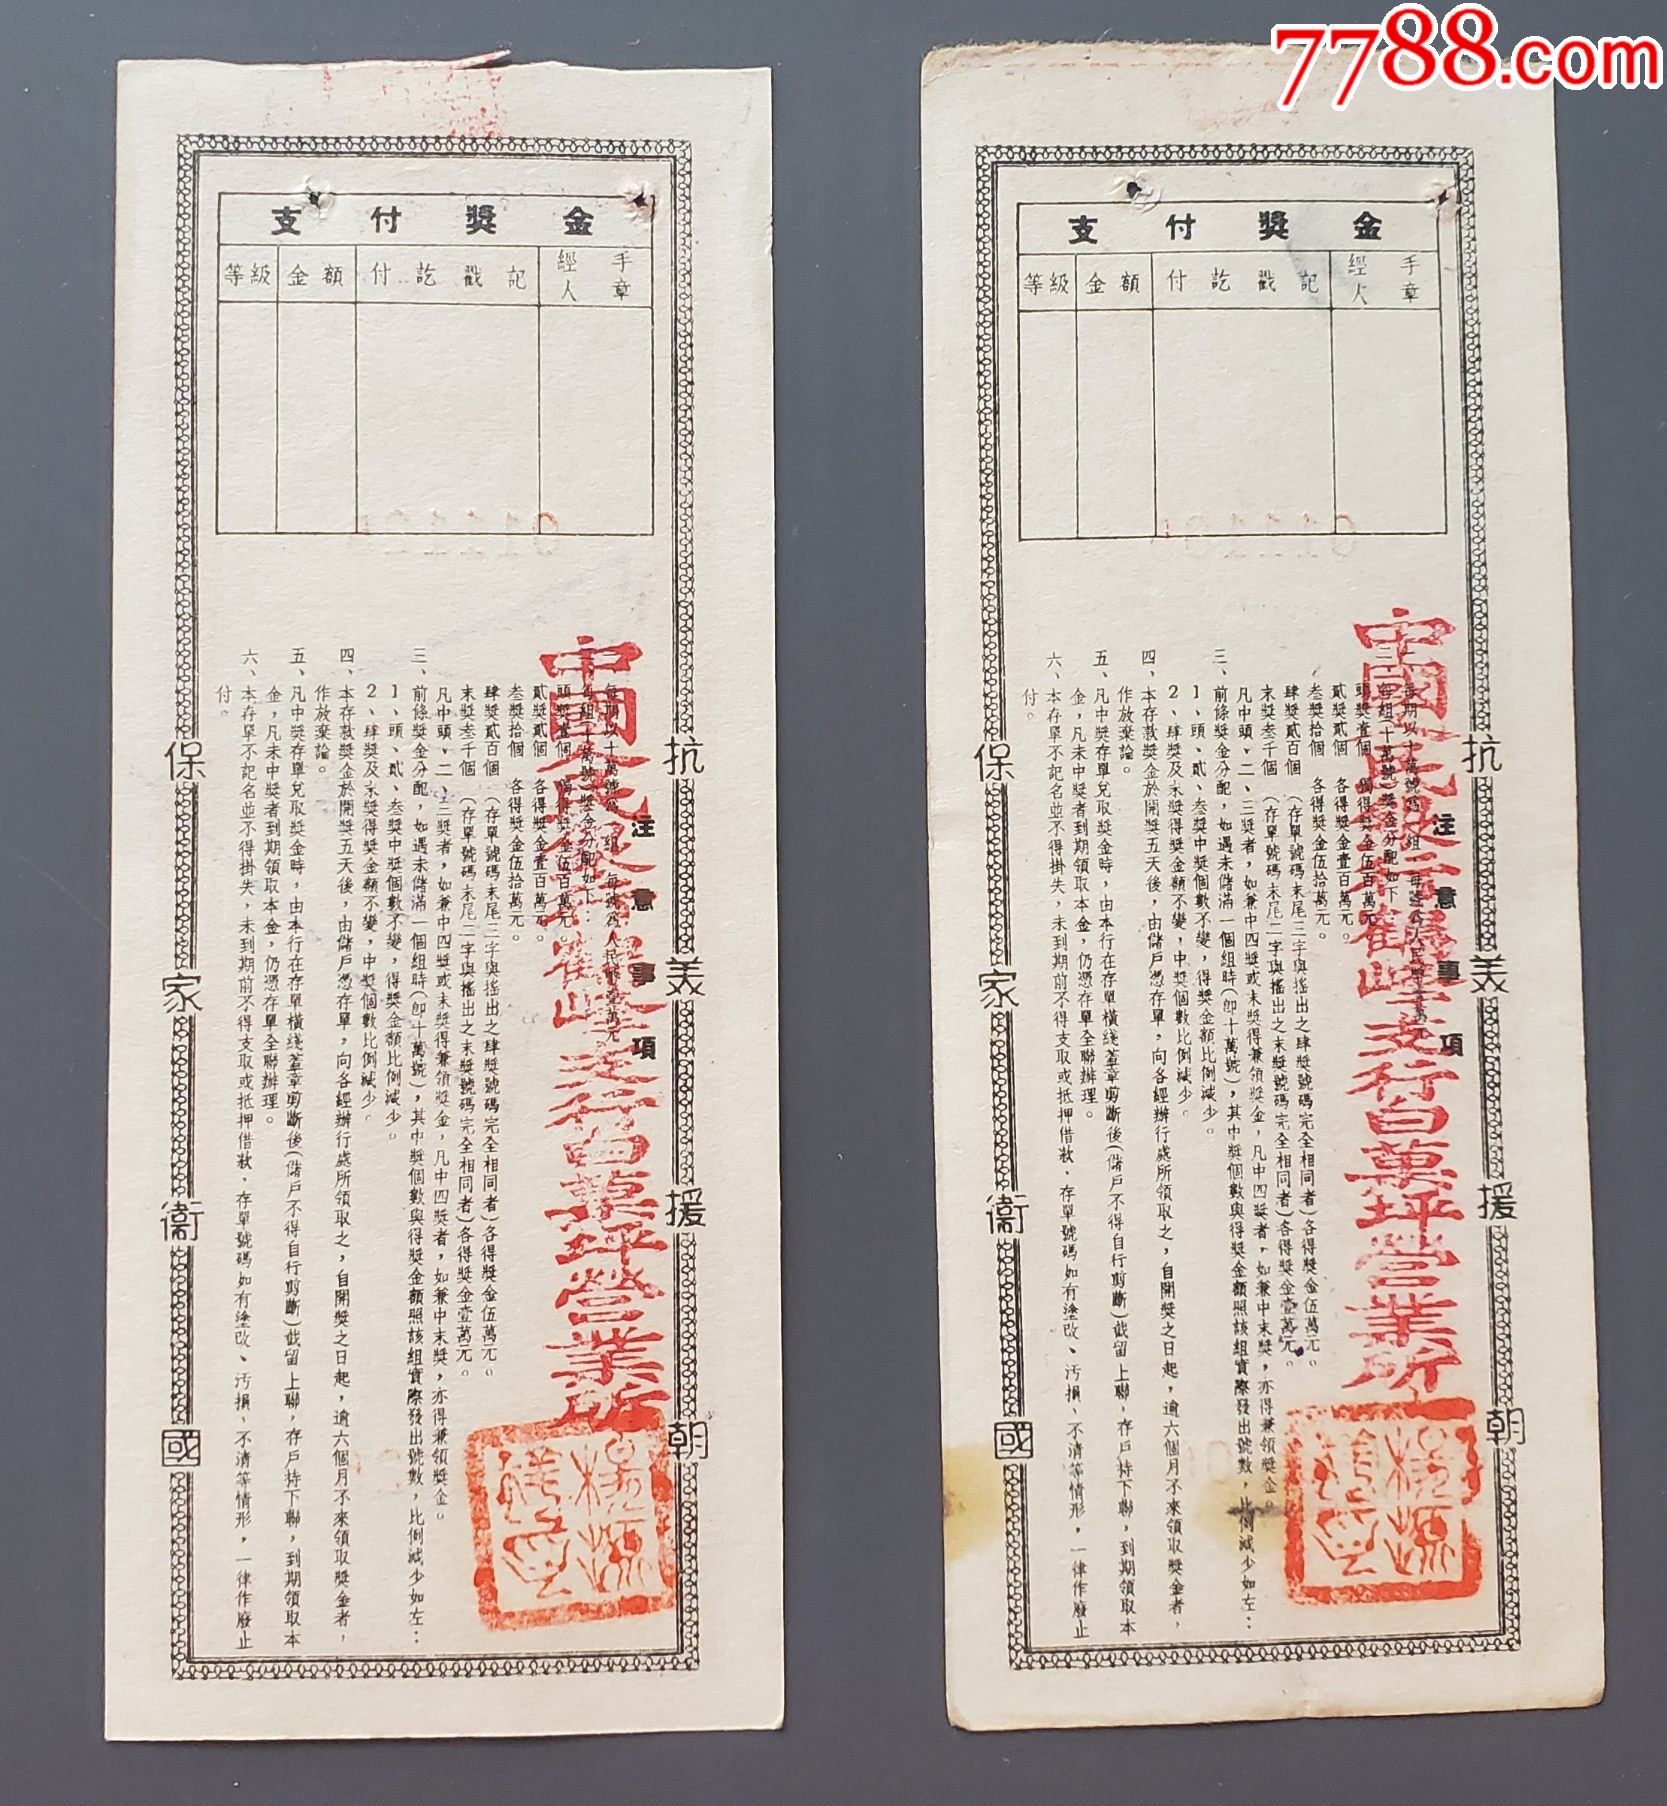 7788.com
支付獎金
等級 金額 付訖戳記 經手人章
注意事項
一、每期以十萬號為一組,每號為人民幣壹萬元
二、每組(十萬號)獎金分配如下:
頭獎壹個 獨得獎金伍百萬元。
貳獎貳個 各得獎金壹百萬元。
叁獎拾個 各得獎金伍拾萬元。
肆獎貳百個 (存單號碼末尾三字與搖出之肆獎號碼完全相同者)各得獎金伍萬元。
末獎叁千個 (存單號碼末尾二字與搖出之末獎號碼完全相同者)各得獎金壹萬元。
凡中頭、二、三獎者,如兼中四獎或末獎得兼領獎金,凡中四獎者,如兼中末獎,亦得兼領獎金。
三、前條獎金分配,如遇未儲滿一個組時(即十萬號),其中獎個數與得獎金額照該組實際發出號數,比例減少如左:
1、頭、貳、叁獎中獎個數不變,得獎金額比例減少。
2、肆獎及末獎得獎金額不變,中獎個數比例減少。
四、本存款獎金於開獎五天後,由儲戶憑存單,向各經辦行處所領取之,自開獎之日起,逾六個月不來領取獎金者,
作放棄論。
五、凡中獎存單兌取獎金時,由本行在存單橫綫蓋章剪斷後(儲戶不得自行剪斷)截留上聯,存戶持下聯,到期領取本
金,凡未中獎者到期領取本金,仍憑存單全聯辦理。
六、本存單不記名並不得掛失,未到期前不得支取或抵押借款,存單號碼如有塗改、汚損、不清等情形,一律作廢止
付。
抗美援朝
保家衛國
中國人民銀行鶴峰支行白菓坪營業所
支付獎金
等級 金額 付訖戳記 經手人章
注意事項
一、每期以十萬號為一組,每號為人民幣壹萬元
二、每組(十萬號)獎金分配如下:
頭獎壹個 獨得獎金伍百萬元。
貳獎貳個 各得獎金壹百萬元。
叁獎拾個 各得獎金伍拾萬元。
肆獎貳百個 (存單號碼末尾三字與搖出之肆獎號碼完全相同者)各得獎金伍萬元。
末獎叁千個 (存單號碼末尾二字與搖出之末獎號碼完全相同者)各得獎金壹萬元。
凡中頭、二、三獎者,如兼中四獎或末獎得兼領獎金,凡中四獎者,如兼中末獎,亦得兼領獎金。
三、前條獎金分配,如遇未儲滿一個組時(即十萬號),其中獎個數與得獎金額照該組實際發出號數,比例減少如左:
1、頭、貳、叁獎中獎個數不變,得獎金額比例減少。
2、肆獎及末獎得獎金額不變,中獎個數比例減少。
四、本存款獎金於開獎五天後,由儲戶憑存單,向各經辦行處所領取之,自開獎之日起,逾六個月不來領取獎金者,
作放棄論。
五、凡中獎存單兌取獎金時,由本行在存單橫綫蓋章剪斷後(儲戶不得自行剪斷)截留上聯,存戶持下聯,到期領取本
金,凡未中獎者到期領取本金,仍憑存單全聯辦理。
六、本存單不記名並不得掛失,未到期前不得支取或抵押借款,存單號碼如有塗改、汚損、不清等情形,一律作廢止
付。
抗美援朝
保家衛國
中國人民銀行鶴峰支行白菓坪營業所